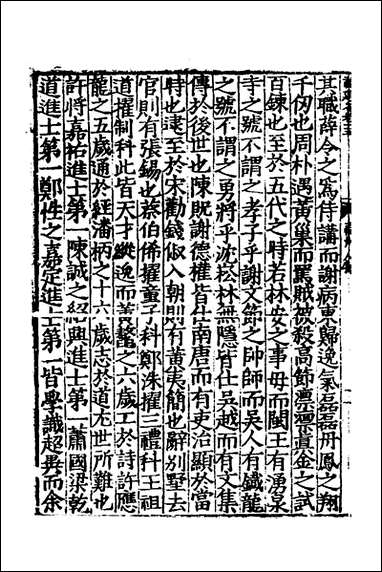 其職薛令之爲侍講而謝病東歸逸氣磊磊丹鳳之翔
千仞也周朴遇黃巢而罵賊被殺高節凛凛真金之試
百鍊也至於五代之時若林安之事母而閩王有湧泉
寺之號不謂之孝子乎謝文節之帥師而吳人有鐵龍
之號不謂之勇將乎沈崧林無隱皆仕吳越而有文集
傳於後世也陳貺謝德權皆仕南唐而有吏治顯於當
時也逮至於宋勸錢俶入朝則有黃夷簡也辭别墅去
官則有張錫也蔡伯俙擢童子科鄭洙擢三禮科王祖
道擢制科此皆天才縱逸而善鰲之六歲工於詩許應
龍之五歲通於經潘柄之十六歲志於道尤世所難也
許將嘉祐進士第一陳誠之紹興進士第一蕭國梁乾
道進士第一鄭性之嘉定進士第一皆學識超異而余